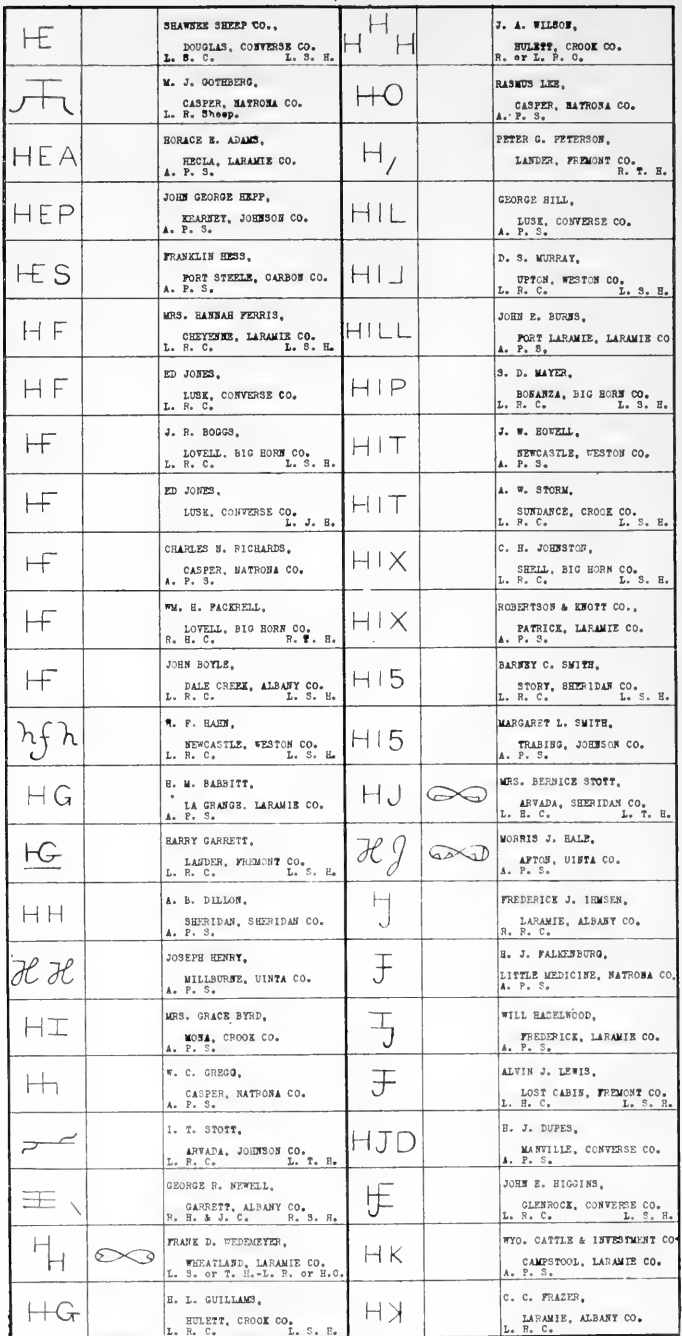 HE
SHAWNEE SHEEP CO.,
DOUGLAS, CONVERSE CO.
L. S. C. L. S. H.
M. J. GOTHBERG,
CASPER, NATRONA CO.
L. R. Sheep.
HEA
HORACE E. ADAMS,
HECLA, LARAMIE CO.
A. P. S.
HEP
JOHN GEORGE HEPP,
KEARNEY, JOHNSON CO.
A. P. S.
HES
FRANKLIN HESS,
FORT STEELE, CARBON CO.
A. P. S.
HF
MRS. HANNAH FERRIS,
CHEYENNE, LARAMIE CO.
L. R. C. L. S. H.
HF
ED JONES,
LUSK, CONVERSE CO.
L. R. C.
HF
J. R. BOGGS,
LOVELL, BIG HORN CO.
L. R. C. L. S. H.
HF
ED JONES,
LUSK, CONVERSE CO.
L. J. H.
HF
CHARLES N. RICHARDS,
CASPER, NATRONA CO.
A. P. S.
HF
WM. H. PACKRELL,
LOVELL, BIG HORN CO.
R. H. C. R. T. H.
HF
JOHN BOYLE,
DALE CREEK, ALBANY CO.
L. R. C. L. S. H.
hfh
F. HAHN,
NEWCASTLE, WESTON CO.
L. R. C. L. S. H.
HG
H. M. BABBITT,
LA GRANGE, LARAMIE CO.
A. P. S.
HG
HARRY GARRETT,
LANDER, FREMONT CO.
L. R. C. L. S. H.
HH
A. B. DILLON,
SHERIDAN, SHERIDAN CO.
A. P. S.
HH
JOSEPH HENRY,
MILLBURNE, UINTA CO.
A. P. S.
HI
MRS. GRACE BYRD,
MONA, CROOK CO.
A. P. S.
Hh
W. C. GREGG,
CASPER, NATRONA CO.
A. P. S.
I. T. STOTT,
ARVADA, JOHNSON CO.
L. R. C. L. T. H.
GEORGE R. NEWELL,
GARRETT, ALBANY CO.
R. H. & J. C. R. S. H.
H
H
FRANK D. WEDEMEYER,
WHEATLAND, LARAMIE CO.
L. S. or T. H.-L. R. or H.C.
HG
H. L. GUILLAMS,
HULETT, CROOK CO.
L. R. C. L. S. H.
H
H H
J. A. WILSON,
HULETT, CROOK CO.
R. or L. R. C.
HO
RASMUS LEE,
CASPER, NATRONA CO.
A. P. S.
H/
PETER G. PETERSON,
LANDER, FREMONT CO.
R. T. H.
HIL
GEORGE HILL,
LUSK, CONVERSE CO.
A. P. S.
HIJ
D. S. MURRAY,
UPTON, WESTON CO.
L. R. C. L. S. H.
HILL
JOHN E. BURNS,
FORT LARAMIE, LARAMIE CO
A. P. S.
HIP
S. D. MAYER,
BONANZA, BIG HORN CO.
L. R. C. L. S. H.
HIT
J. W. HOWELL,
NEWCASTLE, WESTON CO.
A. P. S.
HIT
A. W. STORM,
SUNDANCE, CROOK CO.
L. R. C. L. S. H.
HIX
C. H. JOHNSTON,
SHELL, BIG HORN CO.
L. R. C. L. S. H.
HIX
ROBERTSON & KNOTT CO.,
PATRICK, LARAMIE CO.
A. P. S.
HI5
BARNEY C. SMITH,
STORY, SHERIDAN CO.
L. R. C. L. S. H.
HI5
MARGARET L. SMITH,
TRABING, JOHNSON CO.
A. P. S.
HJ
MRS. BERNICE STOTT,
ARVADA, SHERIDAN CO.
L. H. C. L. T. H.
HJ
MORRIS J. HALE,
AFTON, UINTA CO.
A. P. S.
HJ
FREDERICK J. IHMSEN,
LARAMIE, ALBANY CO.
R. R. C.
H. J. FALKENBURG,
LITTLE MEDICINE, NATRONA CO.
A. P. S.
WILL HAZELWOOD,
FREDERICK, LARAMIE CO.
A. P. S.
ALVIN J. LEWIS,
LOST CABIN, FREMONT CO.
L. H. C. L. S. H.
HJD
H. J. DUPES,
MANVILLE, CONVERSE CO.
A. P. S.
JOHN E. HIGGINS,
GLENROCK, CONVERSE CO.
L. R. C. L. S. H.
HK
WYO. CATTLE & INVESTMENT CO
CAMPSTOOL, LARAMIE CO.
A. P. S.
C. C. FRAZER,
LARAMIE, ALBANY CO.
L. R. C.